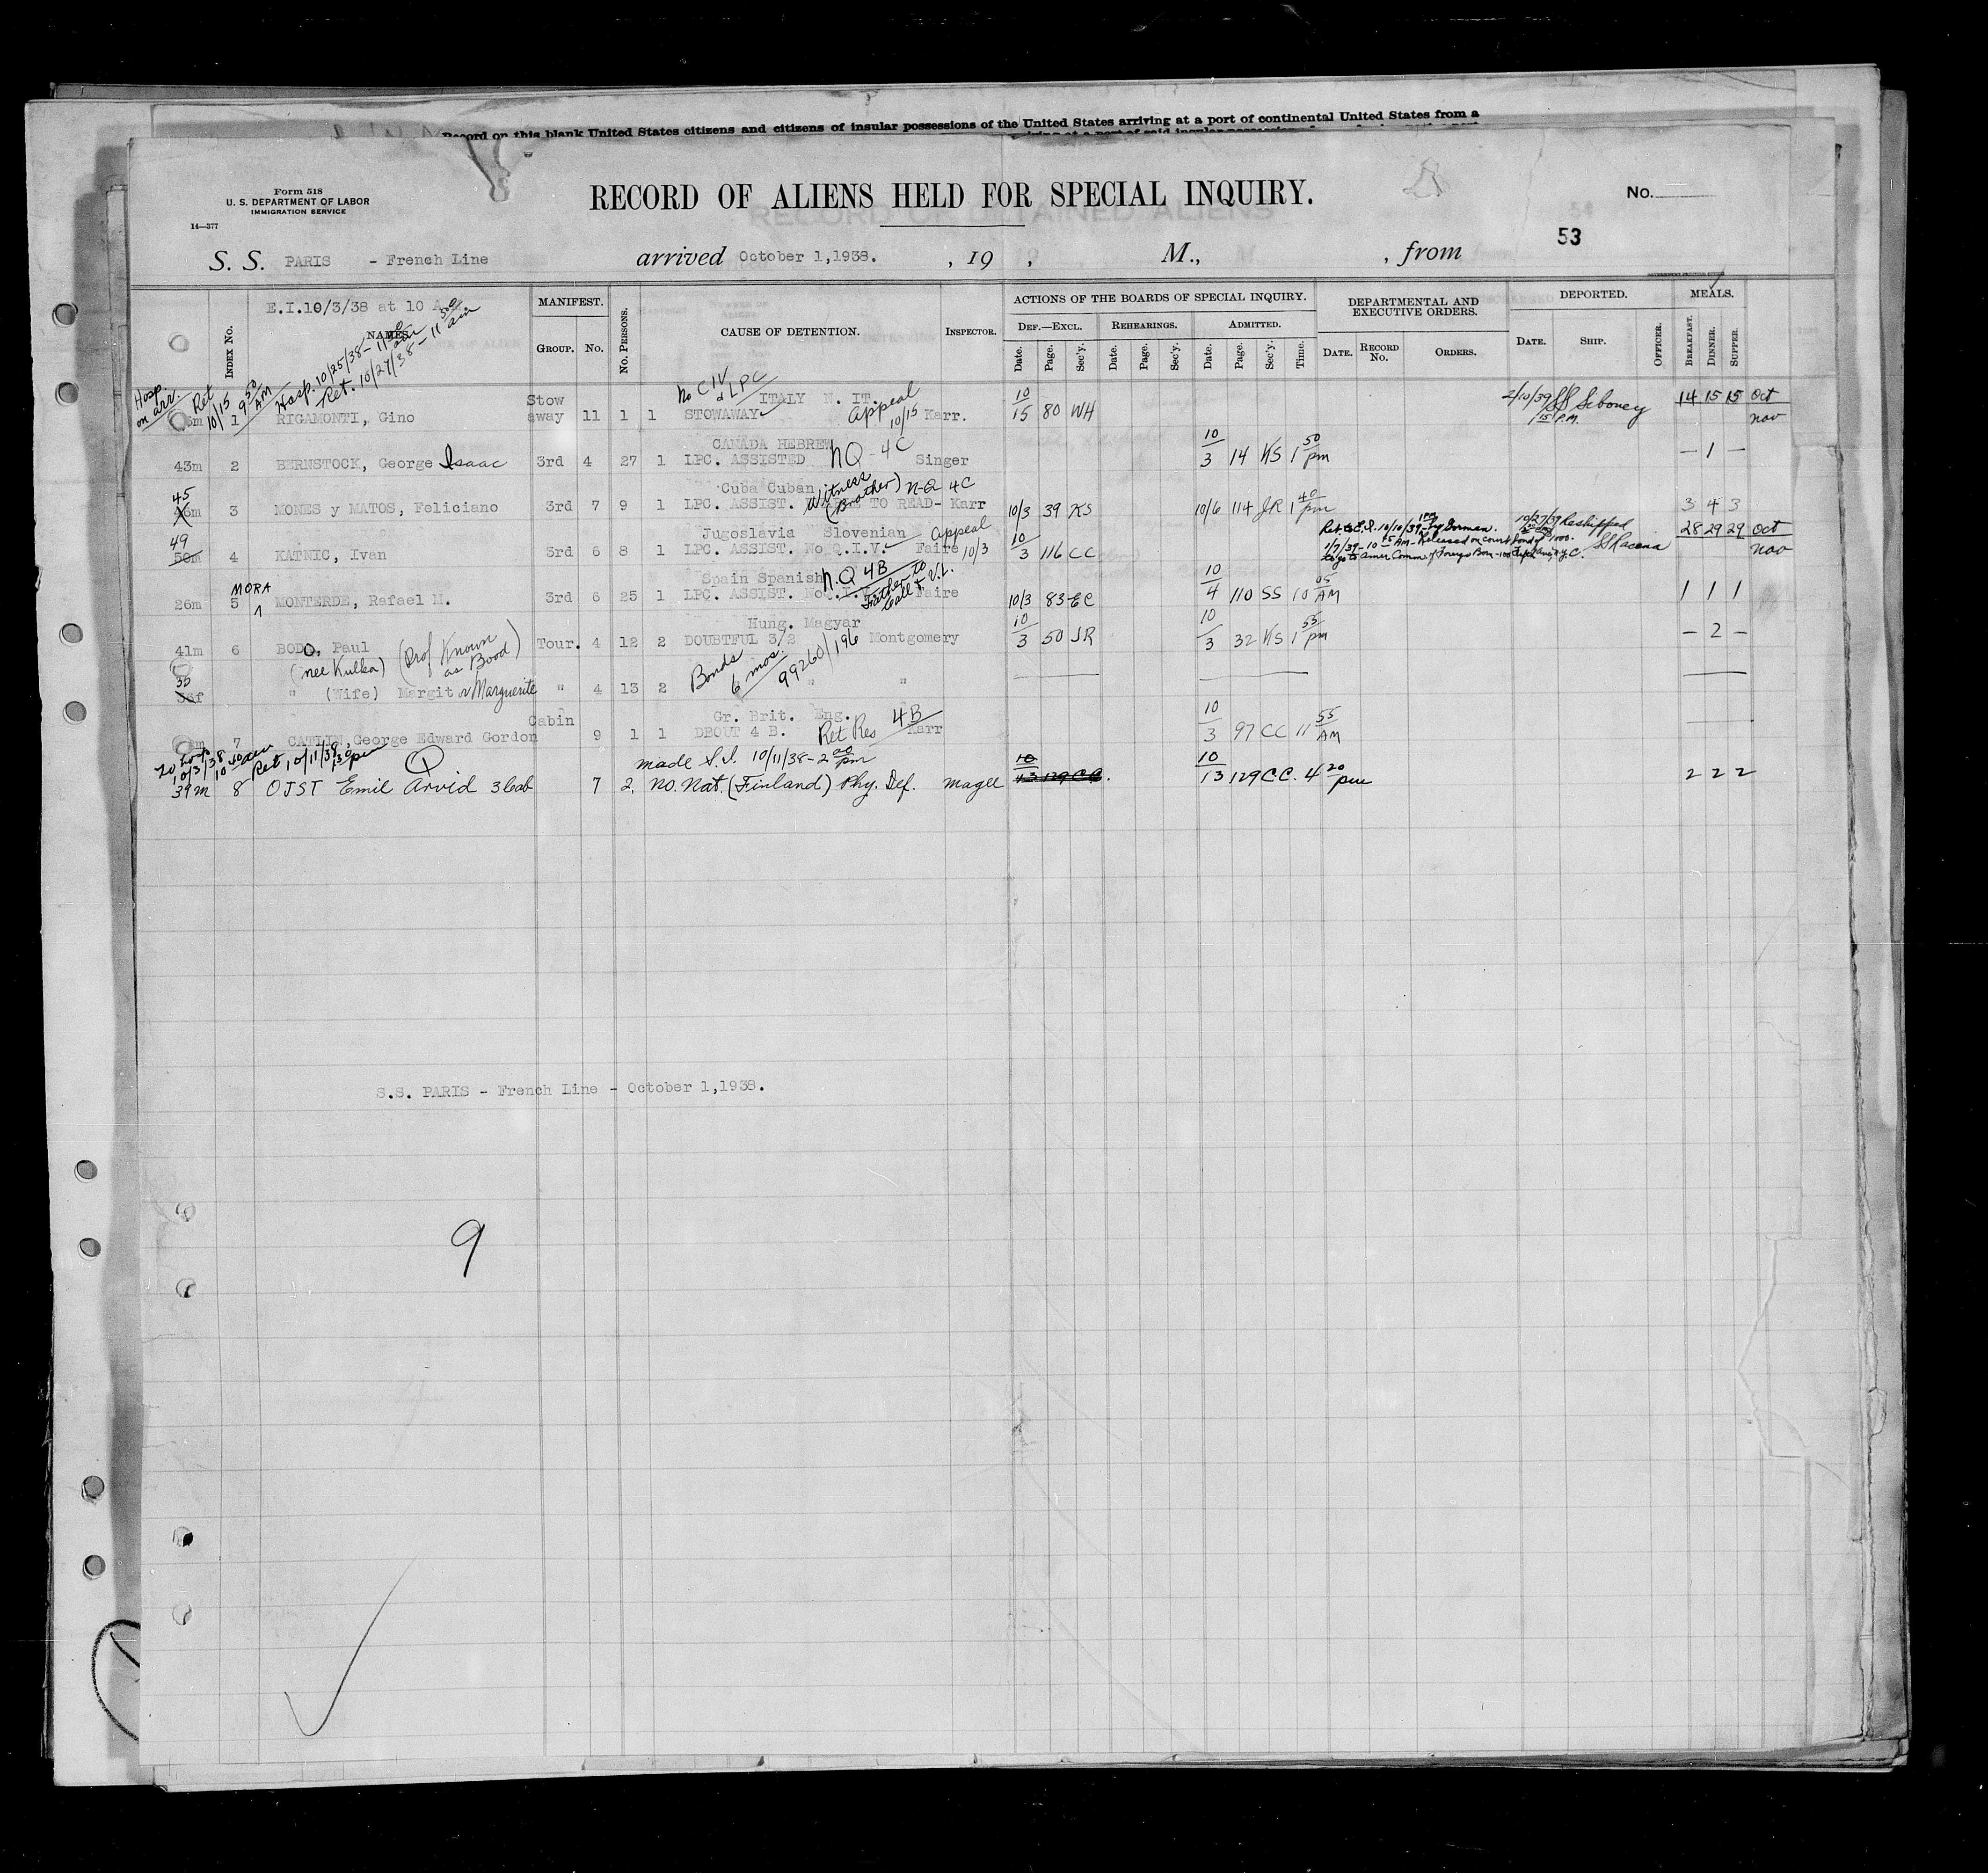 Record on this blank United States citizens and citizens of insular possessions of the United States arriving at a port of continental United States from a
Form 518
U. S. DEPARTMENT OF LABOR
IMMIGRATION SERVICE
14—377
RECORD OF ALIENS HELD FOR SPECIAL INQUIRY.
No.
53
S. S. PARIS - French Line arrived October 1,1938. , 19 , M., , from
E.I.10/3/38 at 10 A
NAMES.
INDEX No.
MANIFEST.
GROUP. No.
No. PERSONS.
CAUSE OF DETENTION.
INSPECTOR.
ACTIONS OF THE BOARDS OF SPECIAL INQUIRY.
DEF.—EXCL. REHEARINGS. ADMITTED.
Date. Page. Sec'y. Date. Page. Sec'y. Date. Page. Sec'y. Time.
DEPARTMENTAL AND EXECUTIVE ORDERS.
DATE. RECORD No. ORDERS.
DEPORTED.
DATE. SHIP. OFFICER.
MEALS.
BREAKFAST. DINNER. SUPPER.
Hosp. on arr. Ret 10/15 9 50 AM Hosp. 10/25/38 - 11 30 am Ret. 10/27/38 - 11 50 am
No CIV & LPC
Stow ITALY N. IT. Appeal 10/15
1 RIGAMONTI, Gino away 11 1 1 STOWAWAY Karr. 10/15 80 WH 2/10/39 SS Siboney 1 15 P.M. 14 15 15 Oct
Nov
CANADA HEBREW NQ - 4C
43m 2 BERNSTOCK, George Isaac 3rd 4 27 1 LPC. ASSISTED Singer 10/3 14 KS 1 50 pm — 1 —
Cuba Cuban Witness (Brother) N-Q 4C
45
46m 3 MONES y MATOS, Feliciano 3rd 7 9 1 LPC. ASSIST. TO READ- Karr 10/3 39 KS 10/6 114 JR 1 40 pm 3 4 3
Jugoslavia Slovenian Appeal 10/3
49
50m 4 KATNIC, Ivan 3rd 6 8 1 LPC. ASSIST. No Q.I.V. Faire 10/3 116 CC 28 29 29 Oct
Ret to E.I. 10/10/39
1/7/39 - 10 AM - Released on court bond of
10/27/39 Reshipped
Nov
Spain Spanish N.Q 4B
MORA
26m 5 MONTERDE, Rafael M. 3rd 6 25 1 LPC. ASSIST. No Faire 10/3 83 EC 10/4 110 SS 10 05 AM 1 1 1
Father to Call
Hung. Magyar
41m 6 BODO, Paul (Prof Known as Bood) Tour. 4 12 2 DOUBTFUL 3/2 Montgomery 10/3 50 JR 10/3 32 KS 1 55 pm — 2 —
(nee Kulka)
Bonds 6 mos. 99260/196
" (Wife) Margit or Marguerite " 4 13 2 " "
Cabin Gr. Brit. Eng. 4B
7 CATLIN, George Edward Gordon 9 1 1 DBOUT 4 B. Ret Res Karr 10/3 97 CC 11 55 AM
To 10/3/38 10 Ret 10/11/38 Q made S.I. 10/11/38 - 2 00 pm
39m 8 OJST Emil Arvid 3 Cab 7 2. No. Nat. (Finland) Phy. Def. Magee 10/13 129 CC. 10/13 129 C.C. 4 20 pm 2 2 2
S.S. PARIS - French Line - October 1,1938.
9